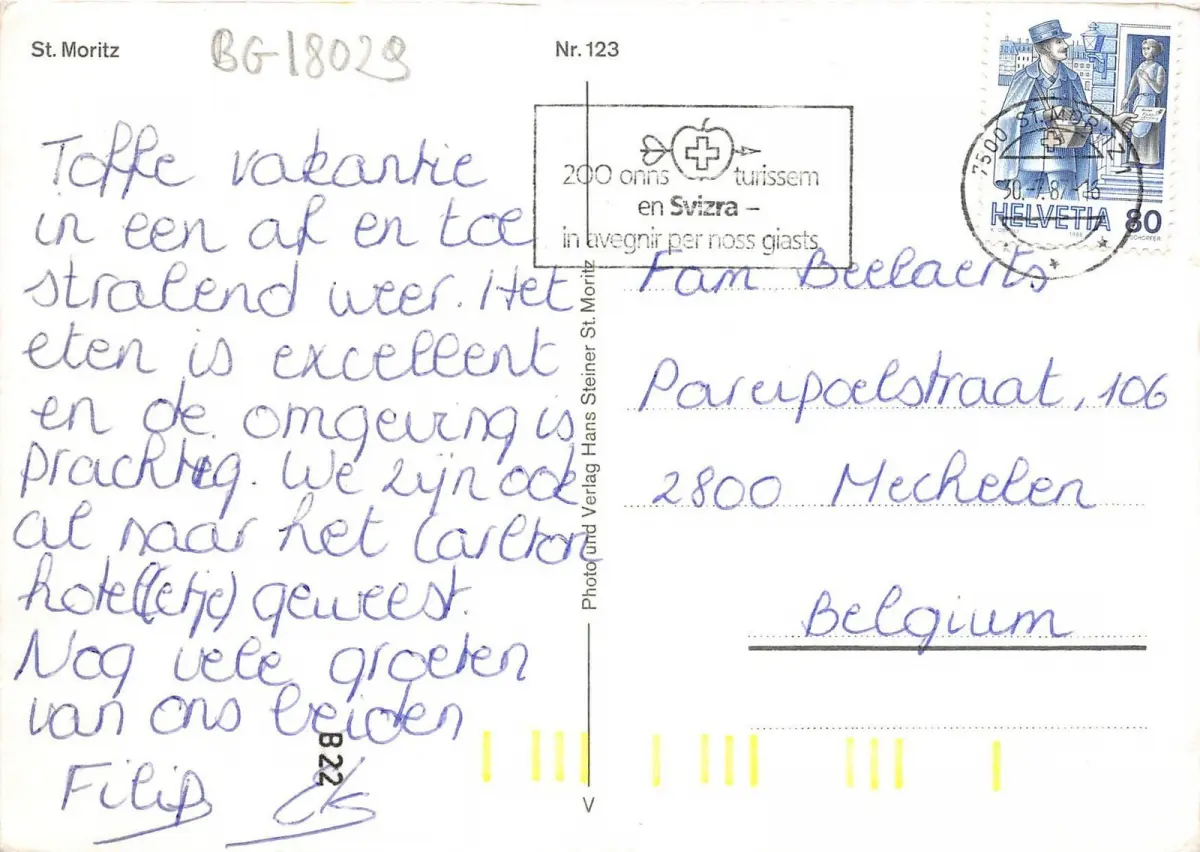 St. Moritz
BG-18029
Nr. 123
Toffe vakantie
in een af en toe
stralend weer. Het
eten is excellent
en de omgeving is
prachtig. We zijn ook
al naar het Carlton
hotel(etje) geweest.
Nog vele groeten
van ons beiden
Filip
B 22
Photo und Verlag Hans Steiner St. Moritz
V
200 onns turissem
en Svizra –
in avegnir per noss giasts
7500 ST. MORITZ 1
30.-7.87-18
HELVETIA 80
Fam Beelaerts
Pareipoelstraat, 106
2800 Mechelen
Belgium